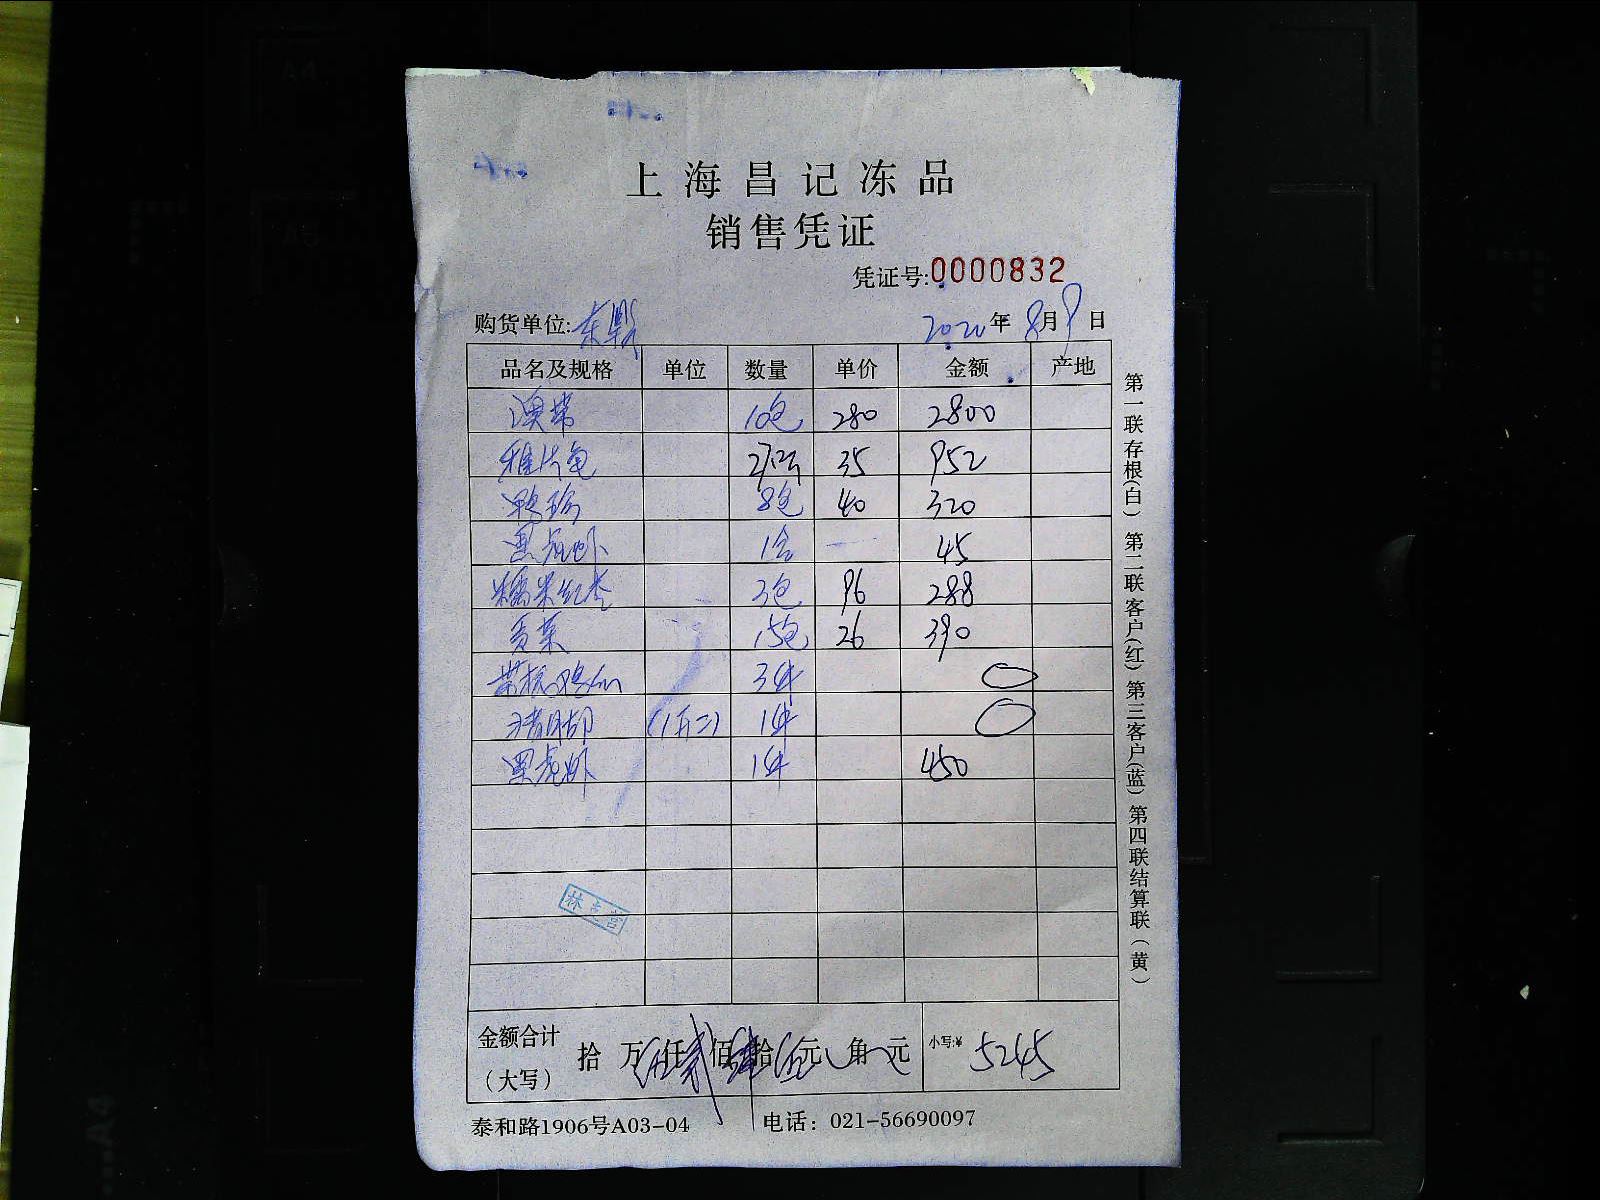 上海昌记冻品
销售凭证
凭证号:0000832
购货单位: 2020年 8月9日
品名及规格 单位 数量 单价 金额 产地
澳带 10包 280 2800
雅片鱼 27.2斤 35 952
鸭珍 8包 40 320
黑虎虾 1盒 — 45
糯米红枣 3包 96 288
贡菜 15包 26 390
3件
(1斤二) 1件
黑虎虾 1件 450
金额合计 拾 万伍仟贰佰肆拾伍元 角 元 小写:¥ 5245
(大写)
泰和路1906号A03-04 电话: 021-56690097
第一联存根(白) 第二联客户(红) 第三客户(蓝) 第四联结算联(黄)